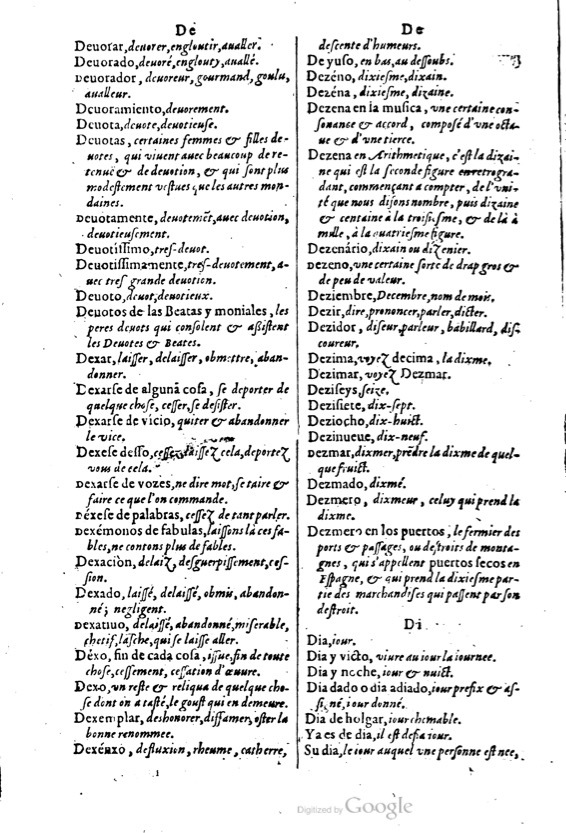 De
Deuorar, deuorer, engloutir, aualler.
Deuorado, deuoré, englouty, auallé.
Deuorador, deuoreur, gourmand, goulu,
aualleur.
Deuoramiento, deuorement.
Deuota, deuote, deuotieuse.
Deuotas, certaines femmes & filles de-
uotes, qui viuent auec beaucoup de re-
tenuë & de deuotion, & qui sont plus
modestement vestues que les autres mon-
daines.
Deuotamente, deuotemẽt, auec deuotion,
deuotieusement.
Deuotissimo, tres-deuot.
Deuotissimamente, tres-deuotement, a-
uec tres grande deuotion.
Deuoto, deuot, deuotieux.
Deuotos de las Beatas y moniales, les
peres deuots qui consolent & assistent
les Deuotes & Beates.
Dexar, laisser, delaisser, obmettre, aban-
donner.
Dexarse de alguna cosa, se deporter de
quelque chose, cesser, se desister.
Dexarse de vicio, quiter & abandonner
le vice.
Dexese desso, cessez, laissez cela, deportez
vous de cela.
Dexarse de vozes, ne dire mot, se taire &
faire ce que l'on commande.
Déxese de palabras, cessez de tant parler.
Dexémonos de fabulas, laissons là ces fa-
bles, ne contons plus de fables.
Dexacion, delaiz, desguerpissement, ces-
sion.
Dexado, laissé, delaissé, obmis, abandon-
né; negligent.
Dexatiuo, delaissé, abandonné, miserable,
chetif, lasche, qui se laisse aller.
Déxo, fin de cada cosa, issue, fin de toute
chose, cessement, cessation d'œuure.
Dexo, vn reste & reliqua de quelque cho-
se dont on a tasté, le goust qui en demeure.
Dexemplar, deshonorer, diffamer, oster la
bonne renommee.
Dexénxo, defluxion, rheume, catherre,
De
descente d'humeurs.
De yuso, en bas, au dessoubs.
Dezéno, dixiesme, dixain.
Dezéna, dixiesme, dizaine.
Dezena en la musica, vne certaine con-
sonance & accord, composé d'vne octa-
ue & d'vne tierce.
Dezena en Arithmetique, c'est la dizai-
ne qui est la seconde figure en retrogra-
dant, commençant a compter, de l'vni-
té que nous disons nombre, puis dizaine
& centaine à la troisiesme, & de là à
mille, à la quatriesme figure.
Dezenário, dixain ou dizenier.
Dezeno, vne certaine sorte de drap gros &
de peu de valeur.
Deziembre, Decembre, nom de mois.
Dezir, dire, prononcer, parler, dicter.
Dezidor, diseur, parleur, babillard, dis-
coureur.
Dezima, voyez decima, la dixme.
Dezimar, voyez Dezmar.
Deziseys, seize.
Dezisiete, dix-sept.
Deziocho, dix-huict.
Dezinueue, dix-neuf.
Dezmar, dixmer, prẽdre la dixme de quel-
que fruict.
Dezmado, dixmé.
Dezmero, dixmeur, celuy qui prend la
dixme.
Dezmero en los puertos, le fermier des
ports & passages, ou destroits de monta-
gnes, qui s'appellent puertos secos en
Espagne, & qui prend la dixiesme par-
tie des marchandises qui passent par son
destroit.
Di
Dia, iour.
Dia y victo, viure au iour la iournee.
Dia y noche, iour & nuict.
Dia dado o dia adiado, iour prefix & as-
signé, iour donné.
Dia de holgar, iour chommable.
Ya es de dia, il est desia iour.
Su dia, le iour auquel vne personne est nee,
Digitized by Google